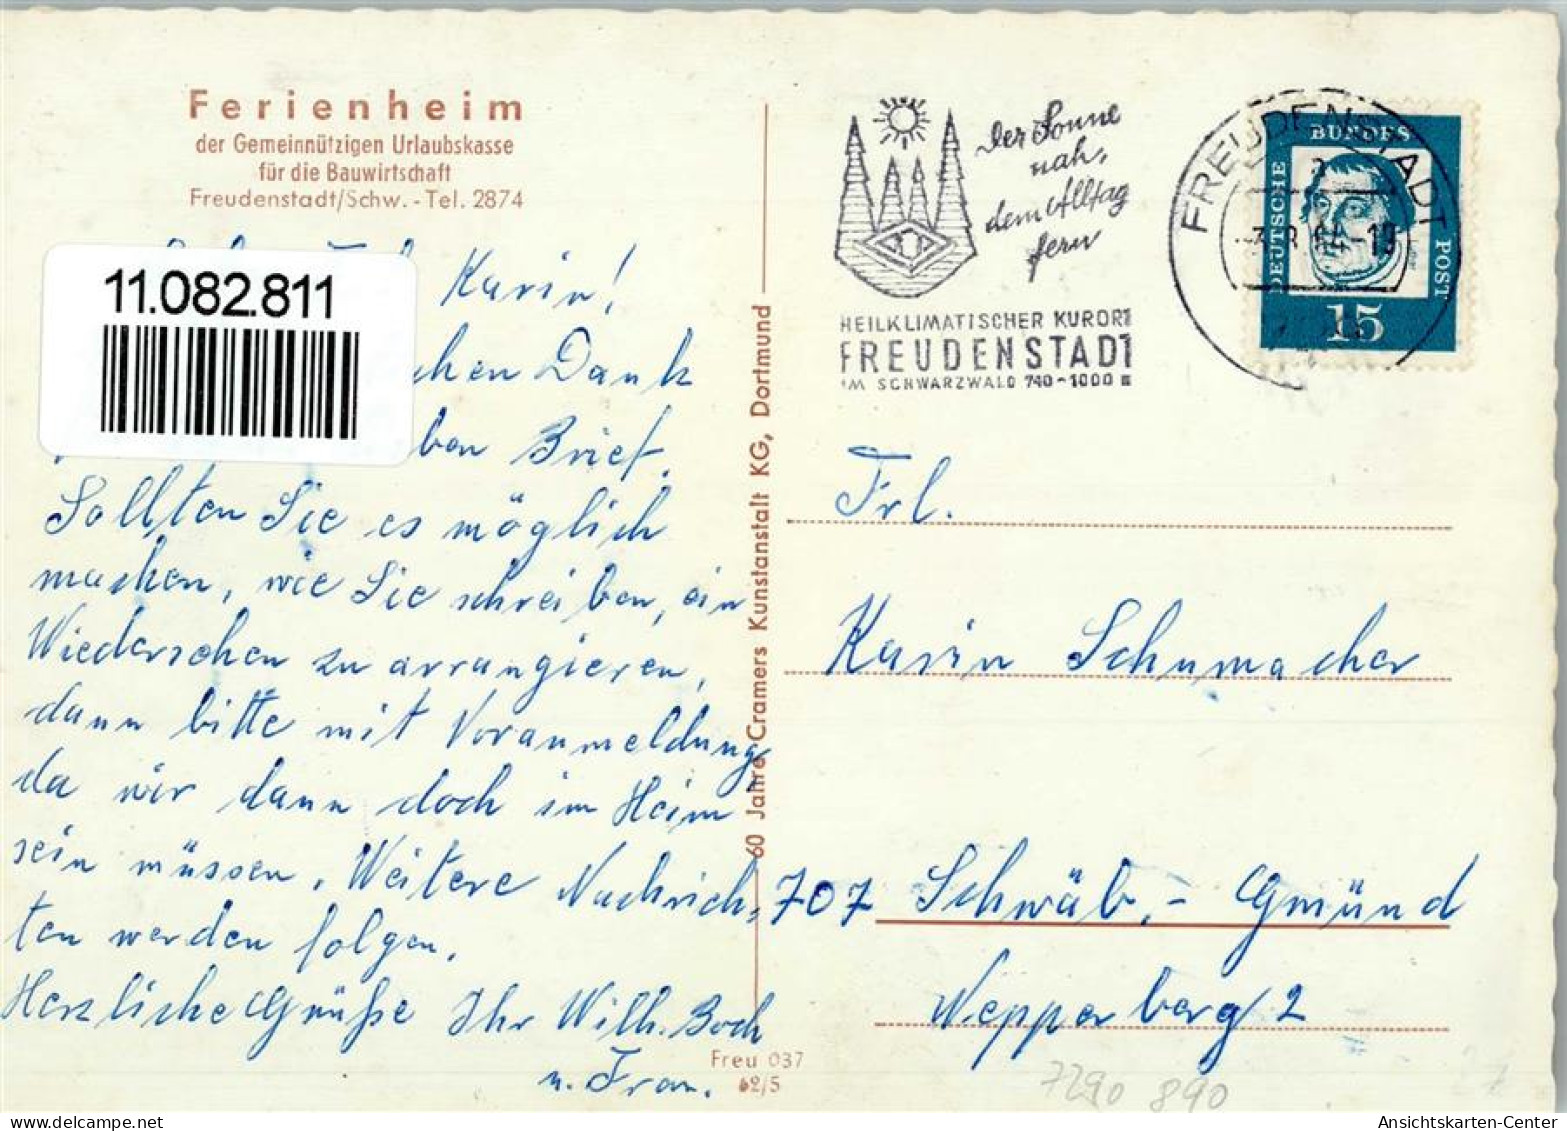 Ferienheim
der Gemeinnützigen Urlaubskasse
für die Bauwirtschaft
Freudenstadt/Schw. - Tel. 2874
11.082.811
Karin!
chen Dank
ben Brief.
Sollten Sie es möglich
machen, wie Sie schreiben, ein
Wiedersehen zu arrangieren,
dann bitte mit Voranmeldung,
da wir dann doch im Heim
sein müssen. Weitere Nachrich-
ten werden folgen.
Herzliche Grüße Ihr Wilh. Boch
u. Frau.
60 Jahre Cramers Kunstanstalt KG, Dortmund
Freu 037
62/5
Der Sonne
nah,
dem Alltag
fern
HEILKLIMATISCHER KURORT
FREUDENSTADT
IM SCHWARZWALD 740-1000 m
FREUDENSTADT
DEUTSCHE
BUNDES
POST
15
Frl.
Karin Schumacher
707 Schwäb.- Gmünd
Wepperberg 2
7290 890
AnsichtsKarten-Center